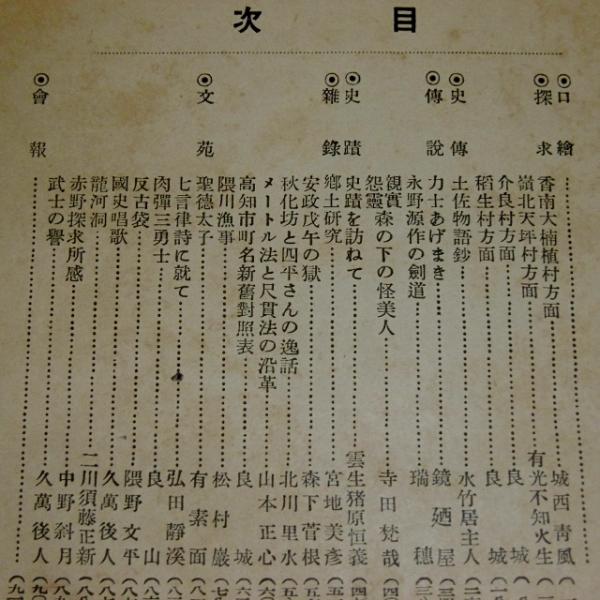 目次
◉口繪
◉探求
香南大楠植村方面 城西靑風
嶺北天坪村方面 有光不知火生
介良村方面 良城
稻生村方面 良城
◉史傳
土佐物語鈔 水竹居主人
◉傳說
力士あげまき 鏡廼屋
永野源作の劍道 瑞穗
觀實
怨靈森の下の怪美人 寺田梵哉
◉史蹟
史蹟を訪ねて 雲生猪原恒義
◉雜錄
鄕土研究 宮地美彥
安政戊午の獄 森下菅根
秋化坊と四平さんの逸話 北川里水
メートル法と尺貫法の沿革 山本正心
高知市町名新舊對照表 良城
隈川漁事 松村巖
◉文苑
聖德太子 有素面
七言律詩に就て 弘田靜溪
肉彈三勇士 良山
反古袋 隈野文平
國史唱歌 久萬後人
龍河洞 二川須藤正新
赤野探求所感 中野斜月
武士の譽 久萬後人
◉會報